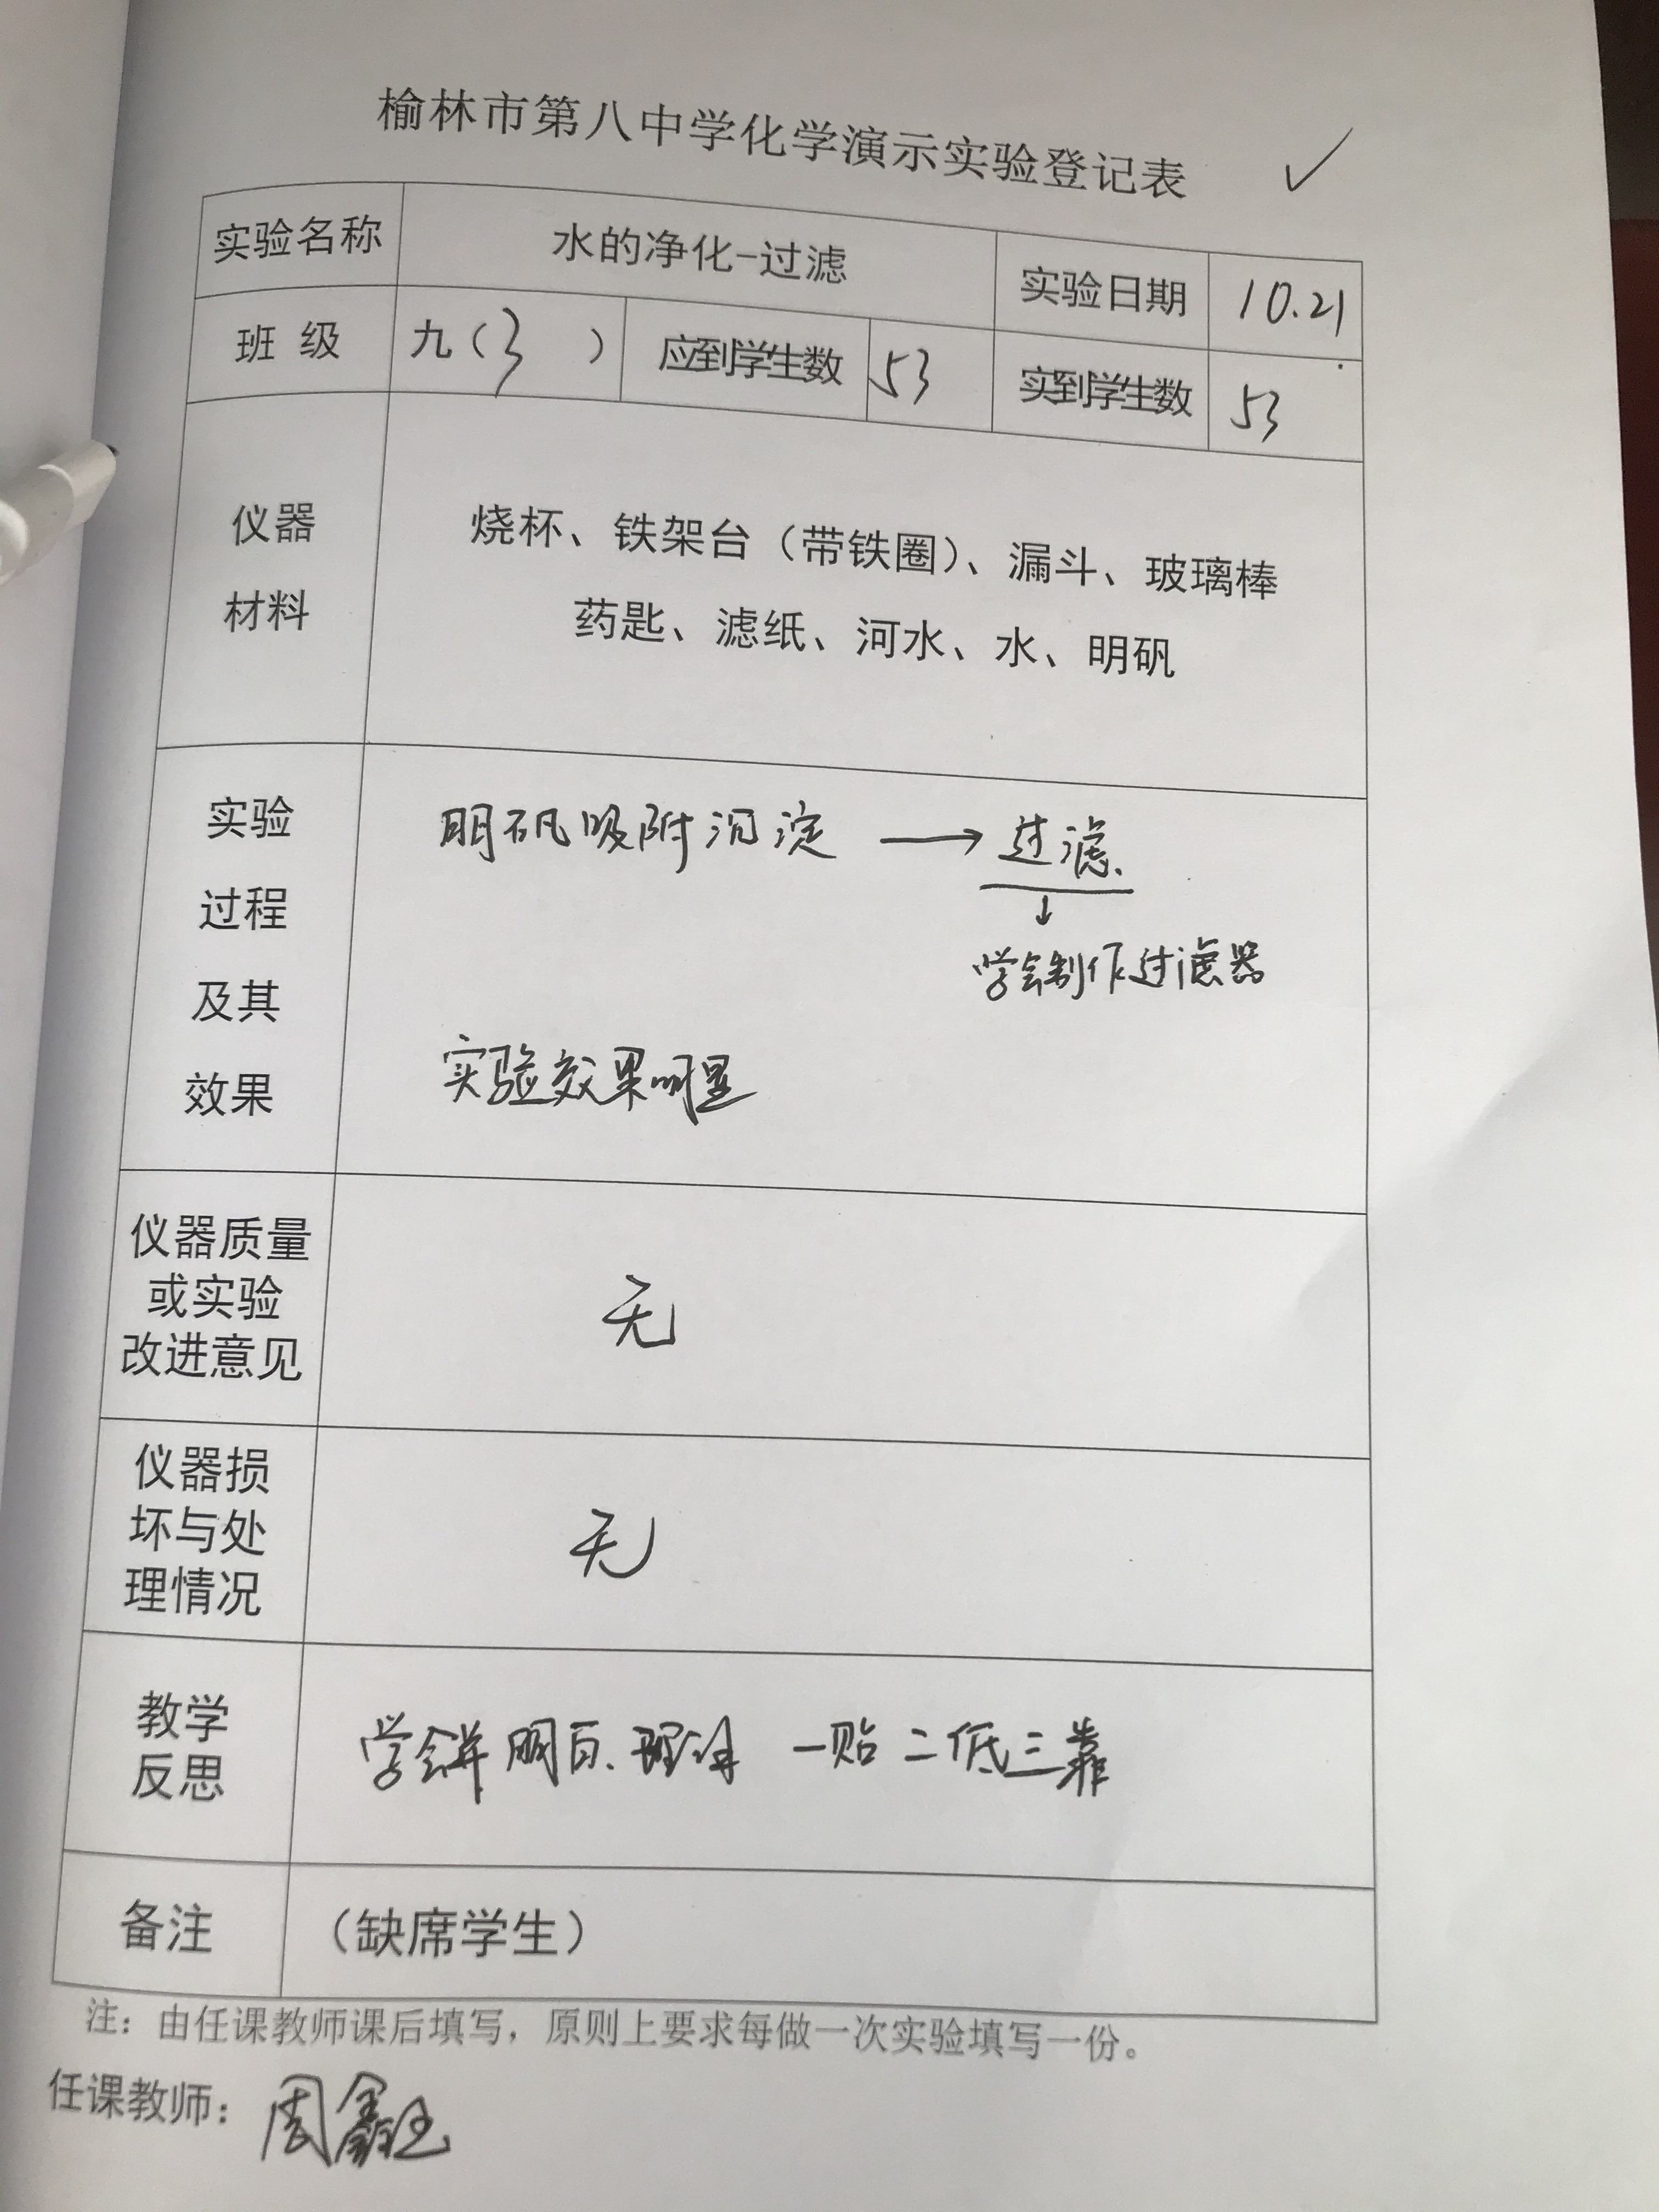 榆林市第八中学化学演示实验登记表 ✓
实验名称 水的净化-过滤 实验日期 10.21
班 级 九（3 ） 应到学生数 53 实到学生数 53
仪器
材料
烧杯、铁架台（带铁圈）、漏斗、玻璃棒
药匙、滤纸、河水、水、明矾
实验
过程
及其
效果
明矾吸附沉淀 → 过滤.
↓
学会制作过滤器
实验效果明显
仪器质量
或实验
改进意见
无
仪器损
坏与处
理情况
无
教学
反思
学会并明白、理解 一贴二低三靠
备注 （缺席学生）
注：由任课教师课后填写，原则上要求每做一次实验填写一份。
任课教师：周鑫